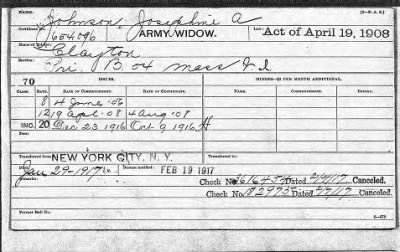 Johnson, Josephine A
(3-P. A. S.)
Certificate No. 654096 ARMY WIDOW. Law: Act of April 19, 1908
Name of Soldier:
Clayton
Service:
Pri. B. 54 Mass V. I.
70 ISSUES. MINORS—$2 PER MONTH ADDITIONAL.
CLASS. RATE. DATE OF COMMENCEMENT. DATE OF CERTIFICATE. COMMENCEMENT. RATE.
8 14 June '06
12 19 Apl. '08 4 Aug '08
INC. 20 Dec 23 1916 Oct 9 1916 H
Transferred from NEW YORK CITY, N. Y.
Jan 29-1917 FEB 19 1917
Remarks: Check No. Dated 2/4/17 Canceled.
Check No. Dated Canceled.
Former Roll No. 6—672